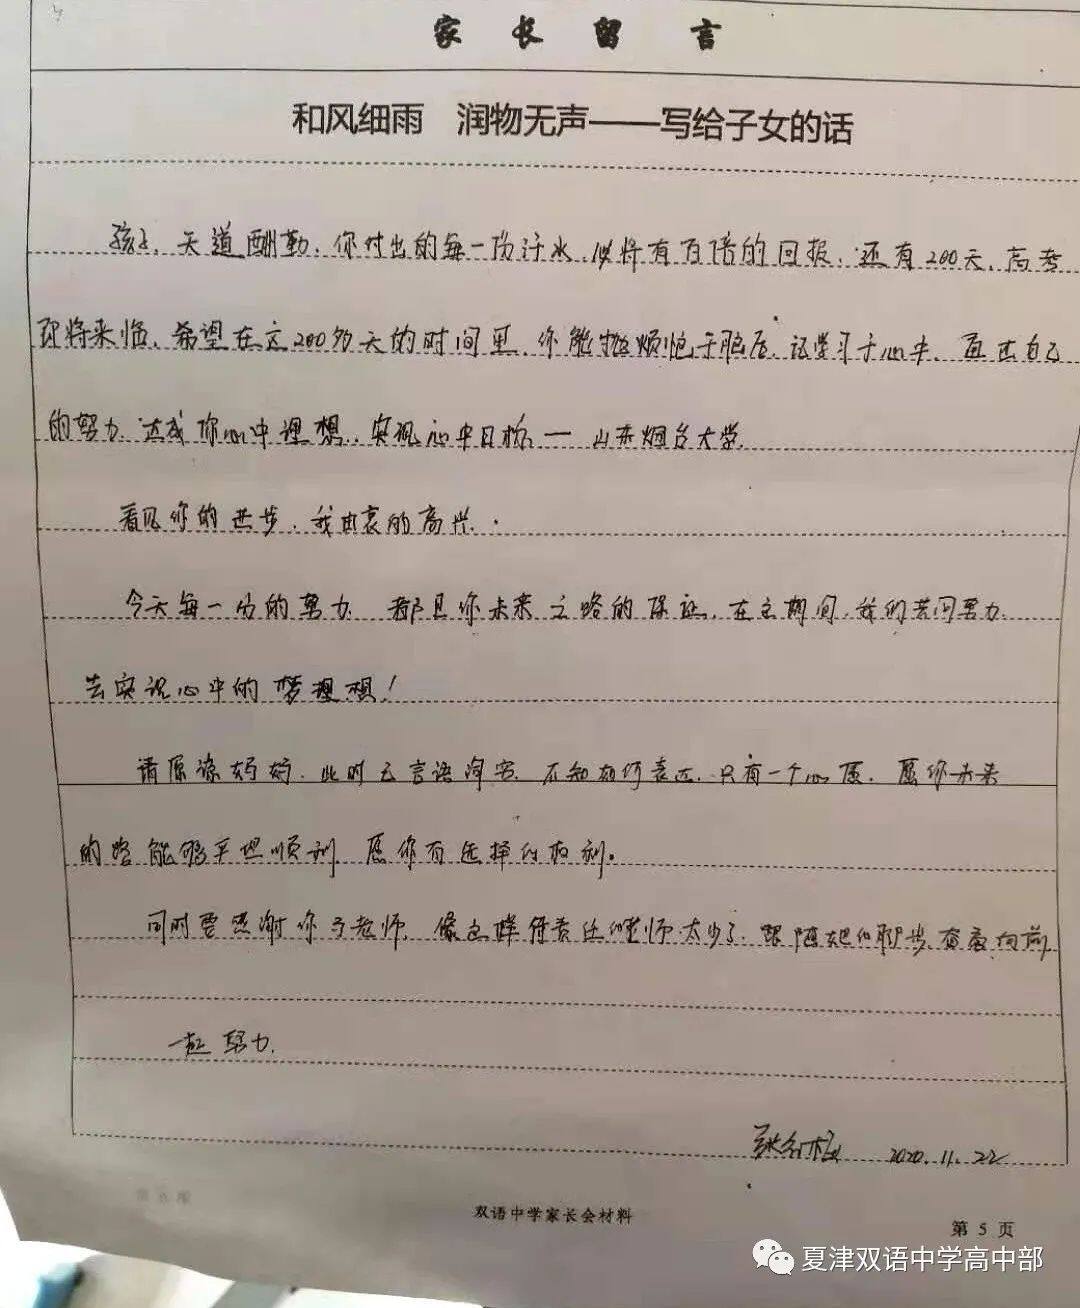 家 长 留 言
和风细雨 润物无声——写给子女的话
孩子，天道酬勤，你付出的每一份汗水，必将有百倍的回报，还有200天，高考
即将来临，希望在这200多天的时间里，你能抛烦恼于脑后，记学习于心中，通过自己
的努力，达成你心中理想，实现心中目标—山东烟台大学。
看见你的进步，我由衷的高兴。
今天每一份的努力，都是你未来之路的保证，在这期间，我们共同努力，
去实现心中的梦理想！
请原谅妈妈，此时无言语，不知如何表达，只有一个心愿，愿你未来
的路能够平坦顺利，愿你有选择的权利。
同时要感谢你马老师，像这样负责任的老师太少了，跟随她的脚步，奋意向前，
一起努力。
2020.11.22
双语中学家长会材料
第 5 页
夏津双语中学高中部